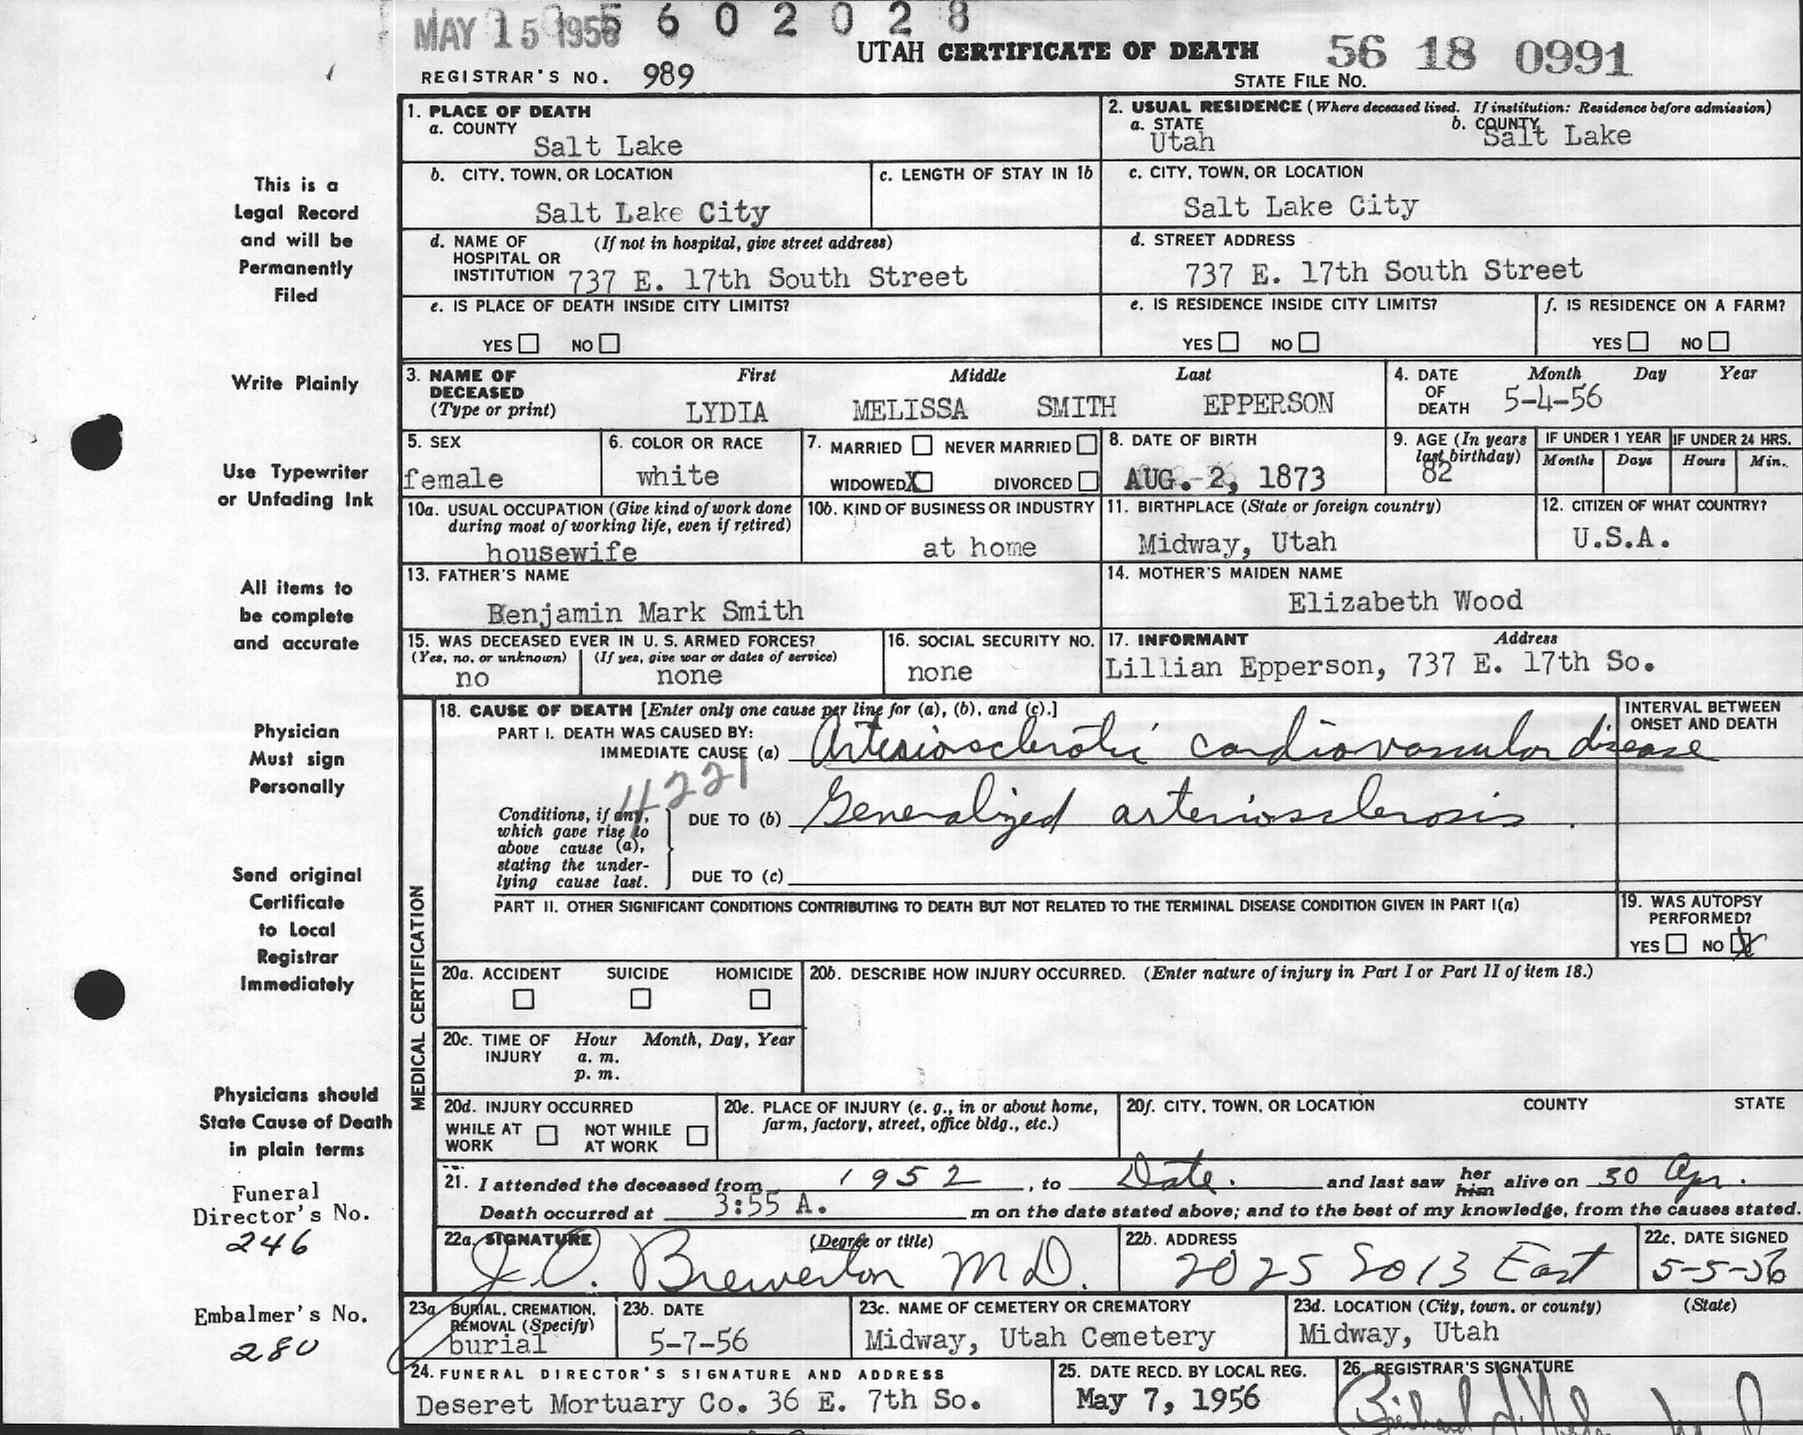 MAY 15 1956 5602028
UTAH CERTIFICATE OF DEATH 56 18 0991
REGISTRAR'S NO. 989 STATE FILE NO.
This is a
Legal Record
and will be
Permanently
Filed
Write Plainly
Use Typewriter
or Unfading Ink
All items to
be complete
and accurate
Physician
Must sign
Personally
Send original
Certificate
to Local
Registrar
Immediately
Physicians should
State Cause of Death
in plain terms
Funeral
Director's No.
246
Embalmer's No.
280
1. PLACE OF DEATH
a. COUNTY
Salt Lake
2. USUAL RESIDENCE (Where deceased lived. If institution: Residence before admission)
a. STATE b. COUNTY
Utah Salt Lake
b. CITY, TOWN, OR LOCATION
Salt Lake City
c. LENGTH OF STAY IN 1b
c. CITY, TOWN, OR LOCATION
Salt Lake City
d. NAME OF (If not in hospital, give street address)
HOSPITAL OR
INSTITUTION 737 E. 17th South Street
d. STREET ADDRESS
737 E. 17th South Street
e. IS PLACE OF DEATH INSIDE CITY LIMITS?
YES NO
e. IS RESIDENCE INSIDE CITY LIMITS?
YES NO
f. IS RESIDENCE ON A FARM?
YES NO
3. NAME OF First Middle Last
DECEASED
(Type or print) LYDIA MELISSA SMITH EPPERSON
4. DATE Month Day Year
OF
DEATH 5-4-56
5. SEX
female
6. COLOR OR RACE
white
7. MARRIED NEVER MARRIED
WIDOWED X DIVORCED
8. DATE OF BIRTH
AUG. 2, 1873
9. AGE (In years
last birthday)
82
IF UNDER 1 YEAR IF UNDER 24 HRS.
Months Days Hours Min.
10a. USUAL OCCUPATION (Give kind of work done
during most of working life, even if retired)
housewife
10b. KIND OF BUSINESS OR INDUSTRY
at home
11. BIRTHPLACE (State or foreign country)
Midway, Utah
12. CITIZEN OF WHAT COUNTRY?
U.S.A.
13. FATHER'S NAME
Benjamin Mark Smith
14. MOTHER'S MAIDEN NAME
Elizabeth Wood
15. WAS DECEASED EVER IN U. S. ARMED FORCES?
(Yes, no, or unknown) (If yes, give war or dates of service)
no none
16. SOCIAL SECURITY NO.
none
17. INFORMANT Address
Lillian Epperson, 737 E. 17th So.
MEDICAL CERTIFICATION
18. CAUSE OF DEATH [Enter only one cause per line for (a), (b), and (c).]
INTERVAL BETWEEN
ONSET AND DEATH
PART I. DEATH WAS CAUSED BY:
IMMEDIATE CAUSE (a) Arteriosclerotic cardiovascular disease
4221
Conditions, if any,
which gave rise to
above cause (a),
stating the under-
lying cause last.
DUE TO (b) Generalized arteriosclerosis.
DUE TO (c)
PART II. OTHER SIGNIFICANT CONDITIONS CONTRIBUTING TO DEATH BUT NOT RELATED TO THE TERMINAL DISEASE CONDITION GIVEN IN PART I(a)
19. WAS AUTOPSY
PERFORMED?
YES NO X
20a. ACCIDENT SUICIDE HOMICIDE
20b. DESCRIBE HOW INJURY OCCURRED. (Enter nature of injury in Part I or Part II of item 18.)
20c. TIME OF Hour Month, Day, Year
INJURY a. m.
p. m.
20d. INJURY OCCURRED
WHILE AT NOT WHILE
WORK AT WORK
20e. PLACE OF INJURY (e. g., in or about home,
farm, factory, street, office bldg., etc.)
20f. CITY, TOWN, OR LOCATION COUNTY STATE
21. I attended the deceased from 1952, to Date. and last saw her him alive on 30 Apr.
Death occurred at 3:55 A. m on the date stated above; and to the best of my knowledge, from the causes stated.
22a. SIGNATURE (Degree or title)
J.O. Brewerton M D.
22b. ADDRESS
2025 So 13 East
22c. DATE SIGNED
5-5-56
23a. BURIAL, CREMATION,
REMOVAL (Specify)
burial
23b. DATE
5-7-56
23c. NAME OF CEMETERY OR CREMATORY
Midway, Utah Cemetery
23d. LOCATION (City, town, or county) (State)
Midway, Utah
24. FUNERAL DIRECTOR'S SIGNATURE AND ADDRESS
Deseret Mortuary Co. 36 E. 7th So.
25. DATE RECD. BY LOCAL REG.
May 7, 1956
26. REGISTRAR'S SIGNATURE